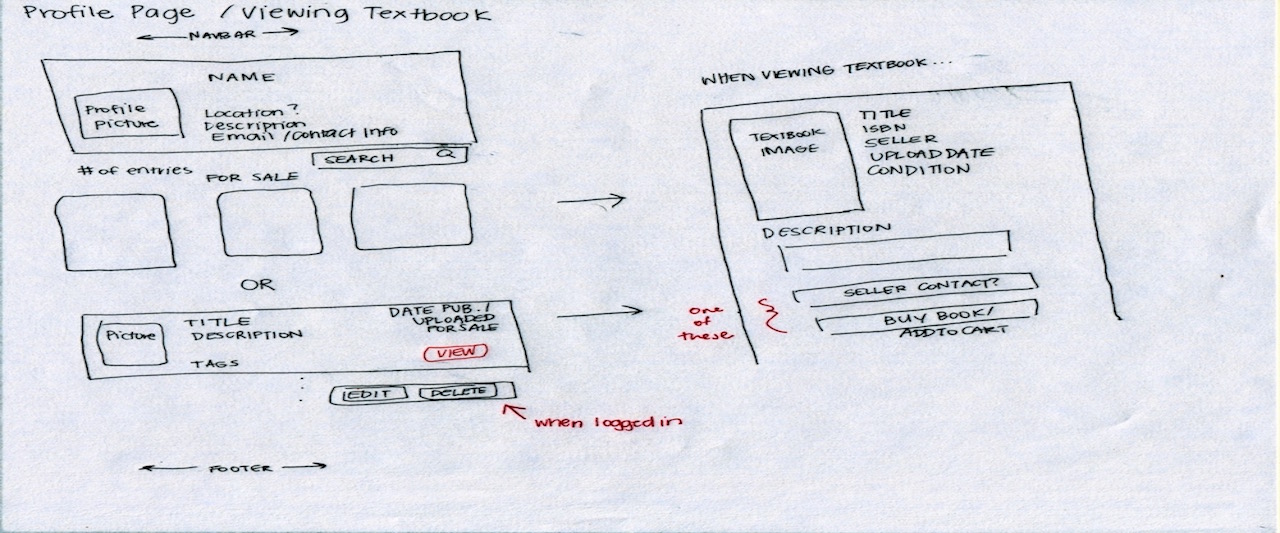 Profile Page / Viewing Textbook
NAVBAR
NAME
Profile
Picture
Location?
Description
Email / Contact Info
SEARCH
# of entries
FOR SALE
OR
Picture
TITLE
DESCRIPTION
TAGS
DATE PUB. /
UPLOADED
FOR SALE
VIEW
EDIT
DELETE
when logged in
FOOTER
WHEN VIEWING TEXTBOOK...
TEXTBOOK
IMAGE
TITLE
ISBN
SELLER
UPLOAD DATE
CONDITION
DESCRIPTION
one
of
these
SELLER CONTACT?
BUY BOOK /
ADD TO CART